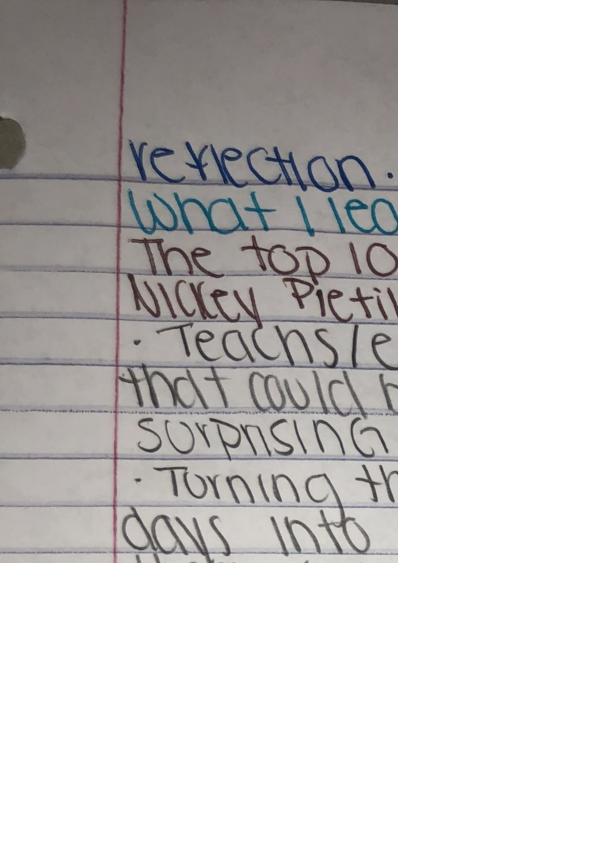 reflection.
What I lea
The top 10
Nickey Pietil
• Teachs/e
that could
surprising
• Turning th
days into